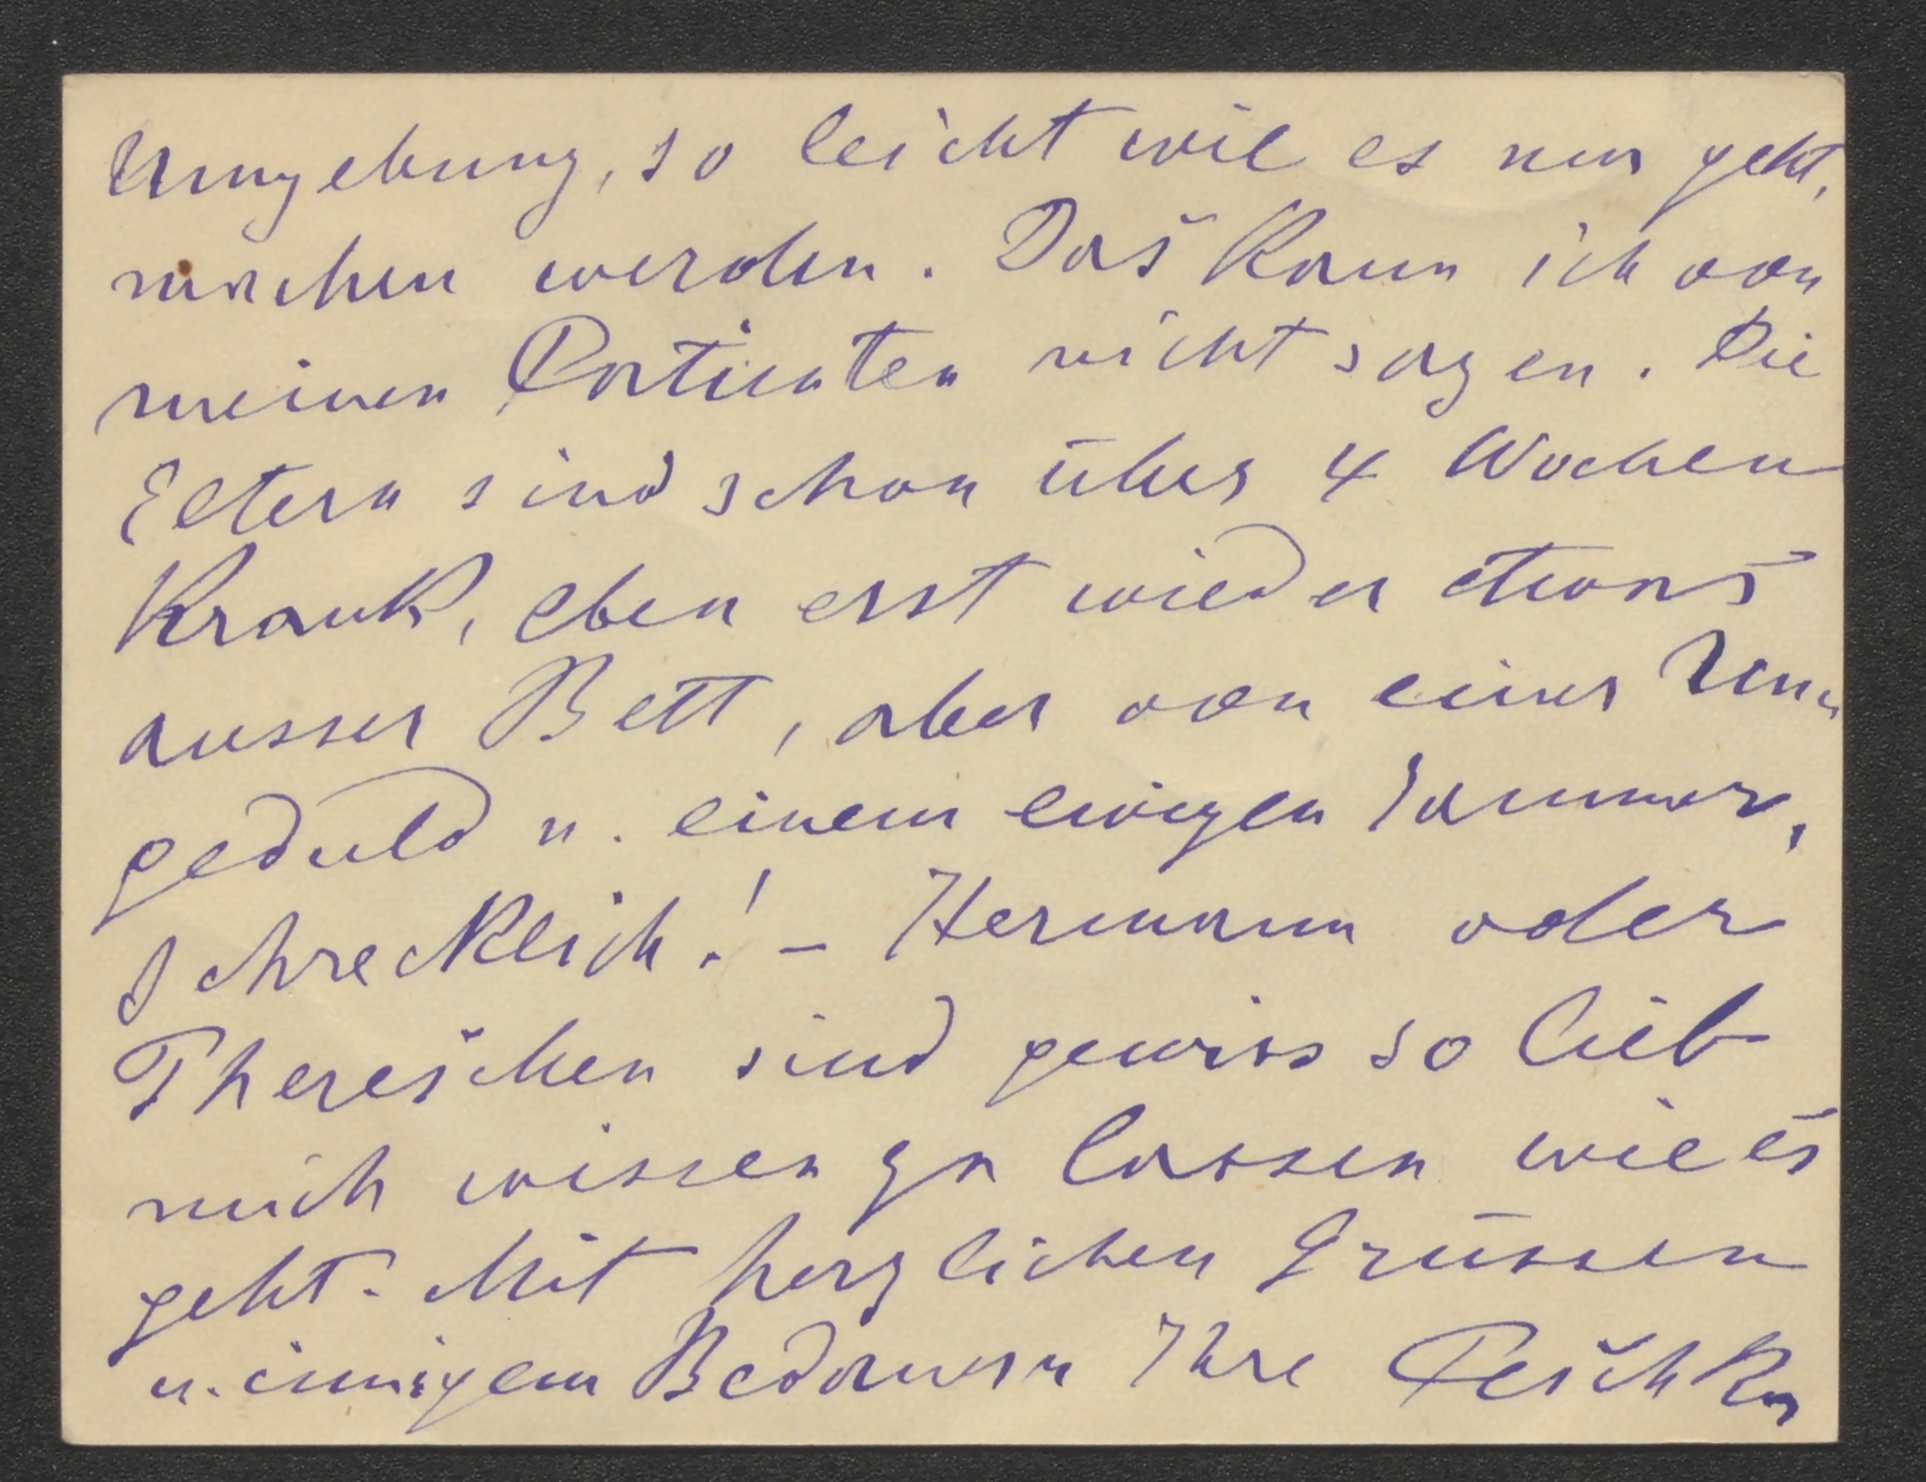 Umgebung, so leicht wie es nur geht,
machen werden. Das kann ich von
meinen Patienten nicht sagen. Die
Eltern sind schon über 4 Wochen
krank, eben erst wieder etwas
ausser Bett, aber von einer Un-
geduld u. einem ewigen Jammer,
schrecklich! - Hermann oder
Thereschen sind gewiss so lieb
mich wissen zu lassen wie es
geht. Mit herzlichen Grüssen
u. innigem Bedauern Ihre Peschka